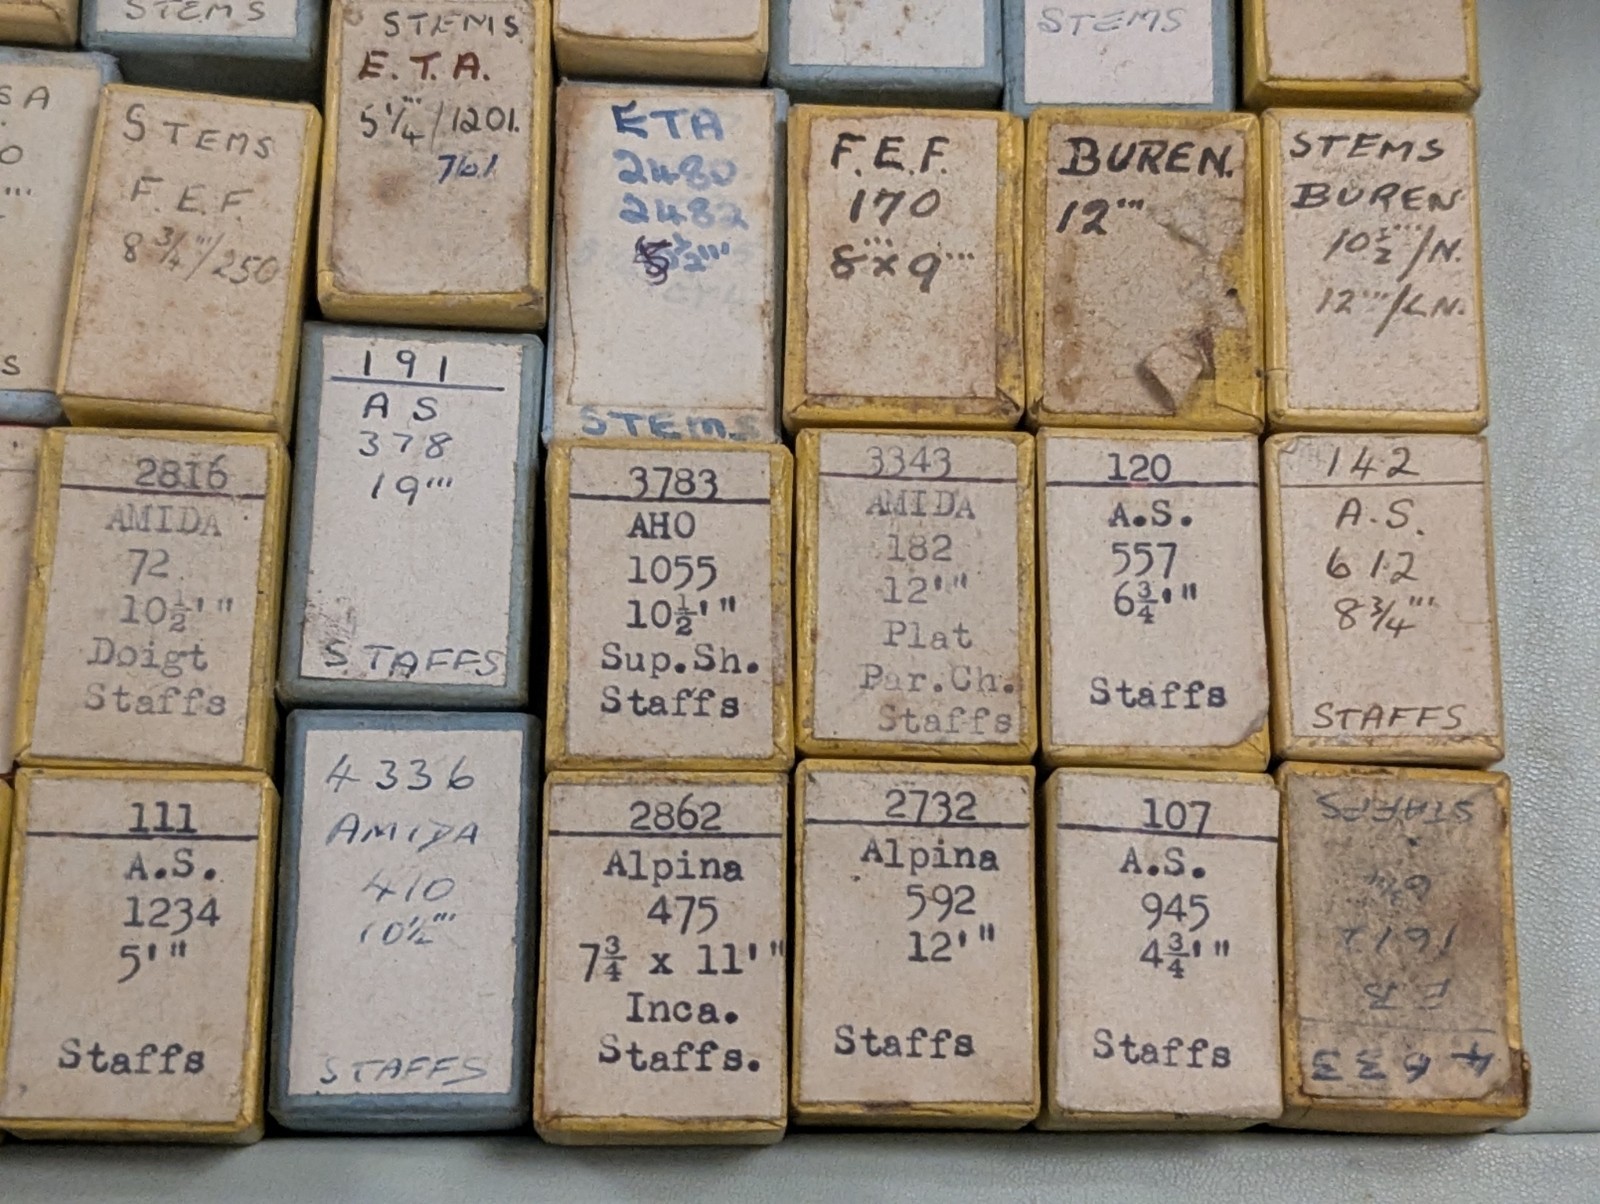 STEMS
STEMS
E.T.A.
5 1/4'''/1201.
761
STEMS
SA
O
'''
S
STEMS
F.E.F.
8 3/4'''/250
ETA
2480
2482
5 1/2'''
STEMS
F.E.F.
170
8'''x9'''
BUREN.
12'''
STEMS
BUREN
10 1/2'''/N.
12'''/LN.
2816
AMIDA
72
10½'"
Doigt
Staffs
191
AS
378
19'''
STAFFS
3783
AHO
1055
10½'"
Sup.Sh.
Staffs
3343
AMIDA
182
12'"
Plat
Par.Ch.
Staffs
120
A.S.
557
6¾'"
Staffs
142
A.S.
612
8 3/4'''
STAFFS
111
A.S.
1234
5'"
Staffs
4336
AMIDA
410
10½'''
STAFFS
2862
Alpina
475
7¾ x 11'"
Inca.
Staffs.
2732
Alpina
592
12'"
Staffs
107
A.S.
945
4¾'"
Staffs
4633
E.B
STAFFS